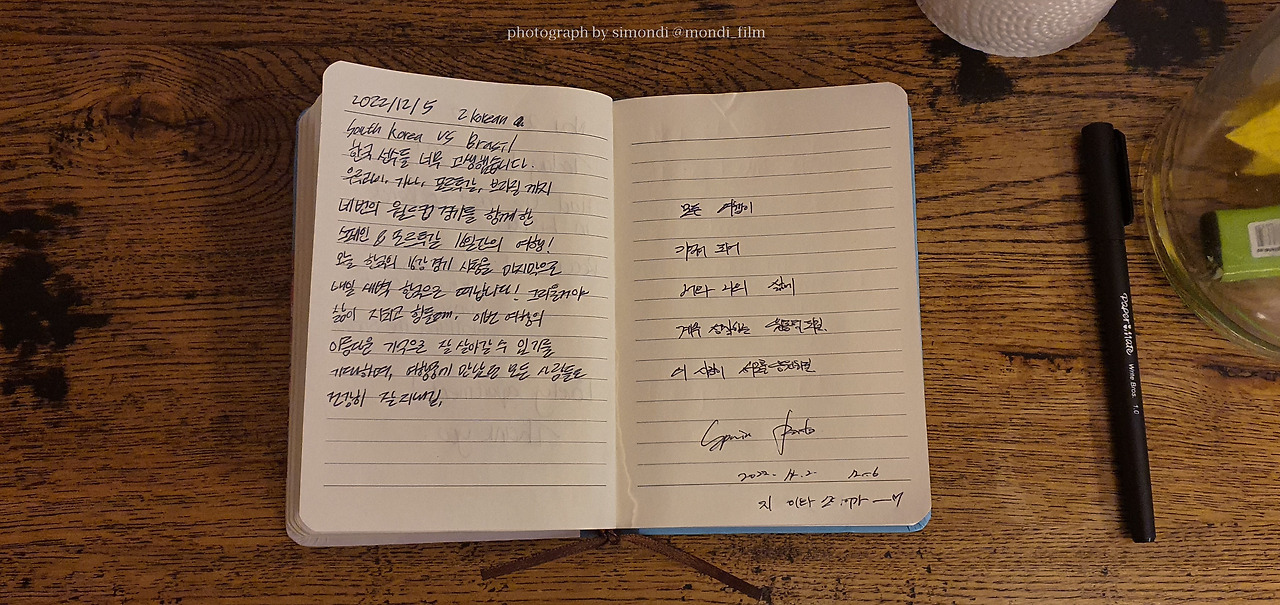 photograph by simondi @mondi_film
2022/12/5 2 korean
South Korea vs Brasil
한국 선수들 너무 고생했습니다.
우루과이, 가나, 포르투갈, 브라질 까지
네번의 월드컵 경기를 함께한
스페인 & 포르투갈 여행!
오늘 한국의 16강 경기 시청을 마지막으로
내일 새벽 한국으로 떠납니다! 그리울거야
삶이 지치고 힘들때, 이번 여행의
아름다운 기억으로 잘 살아갈 수 있기를
기대하며, 여행중에 만났던 모든 사람들도
건강히 잘 지내길,
모든 여행이
나의 삶에
계속
이 사람이
Spain Porto
2022.
PaperMate
Write Bros. 1.0